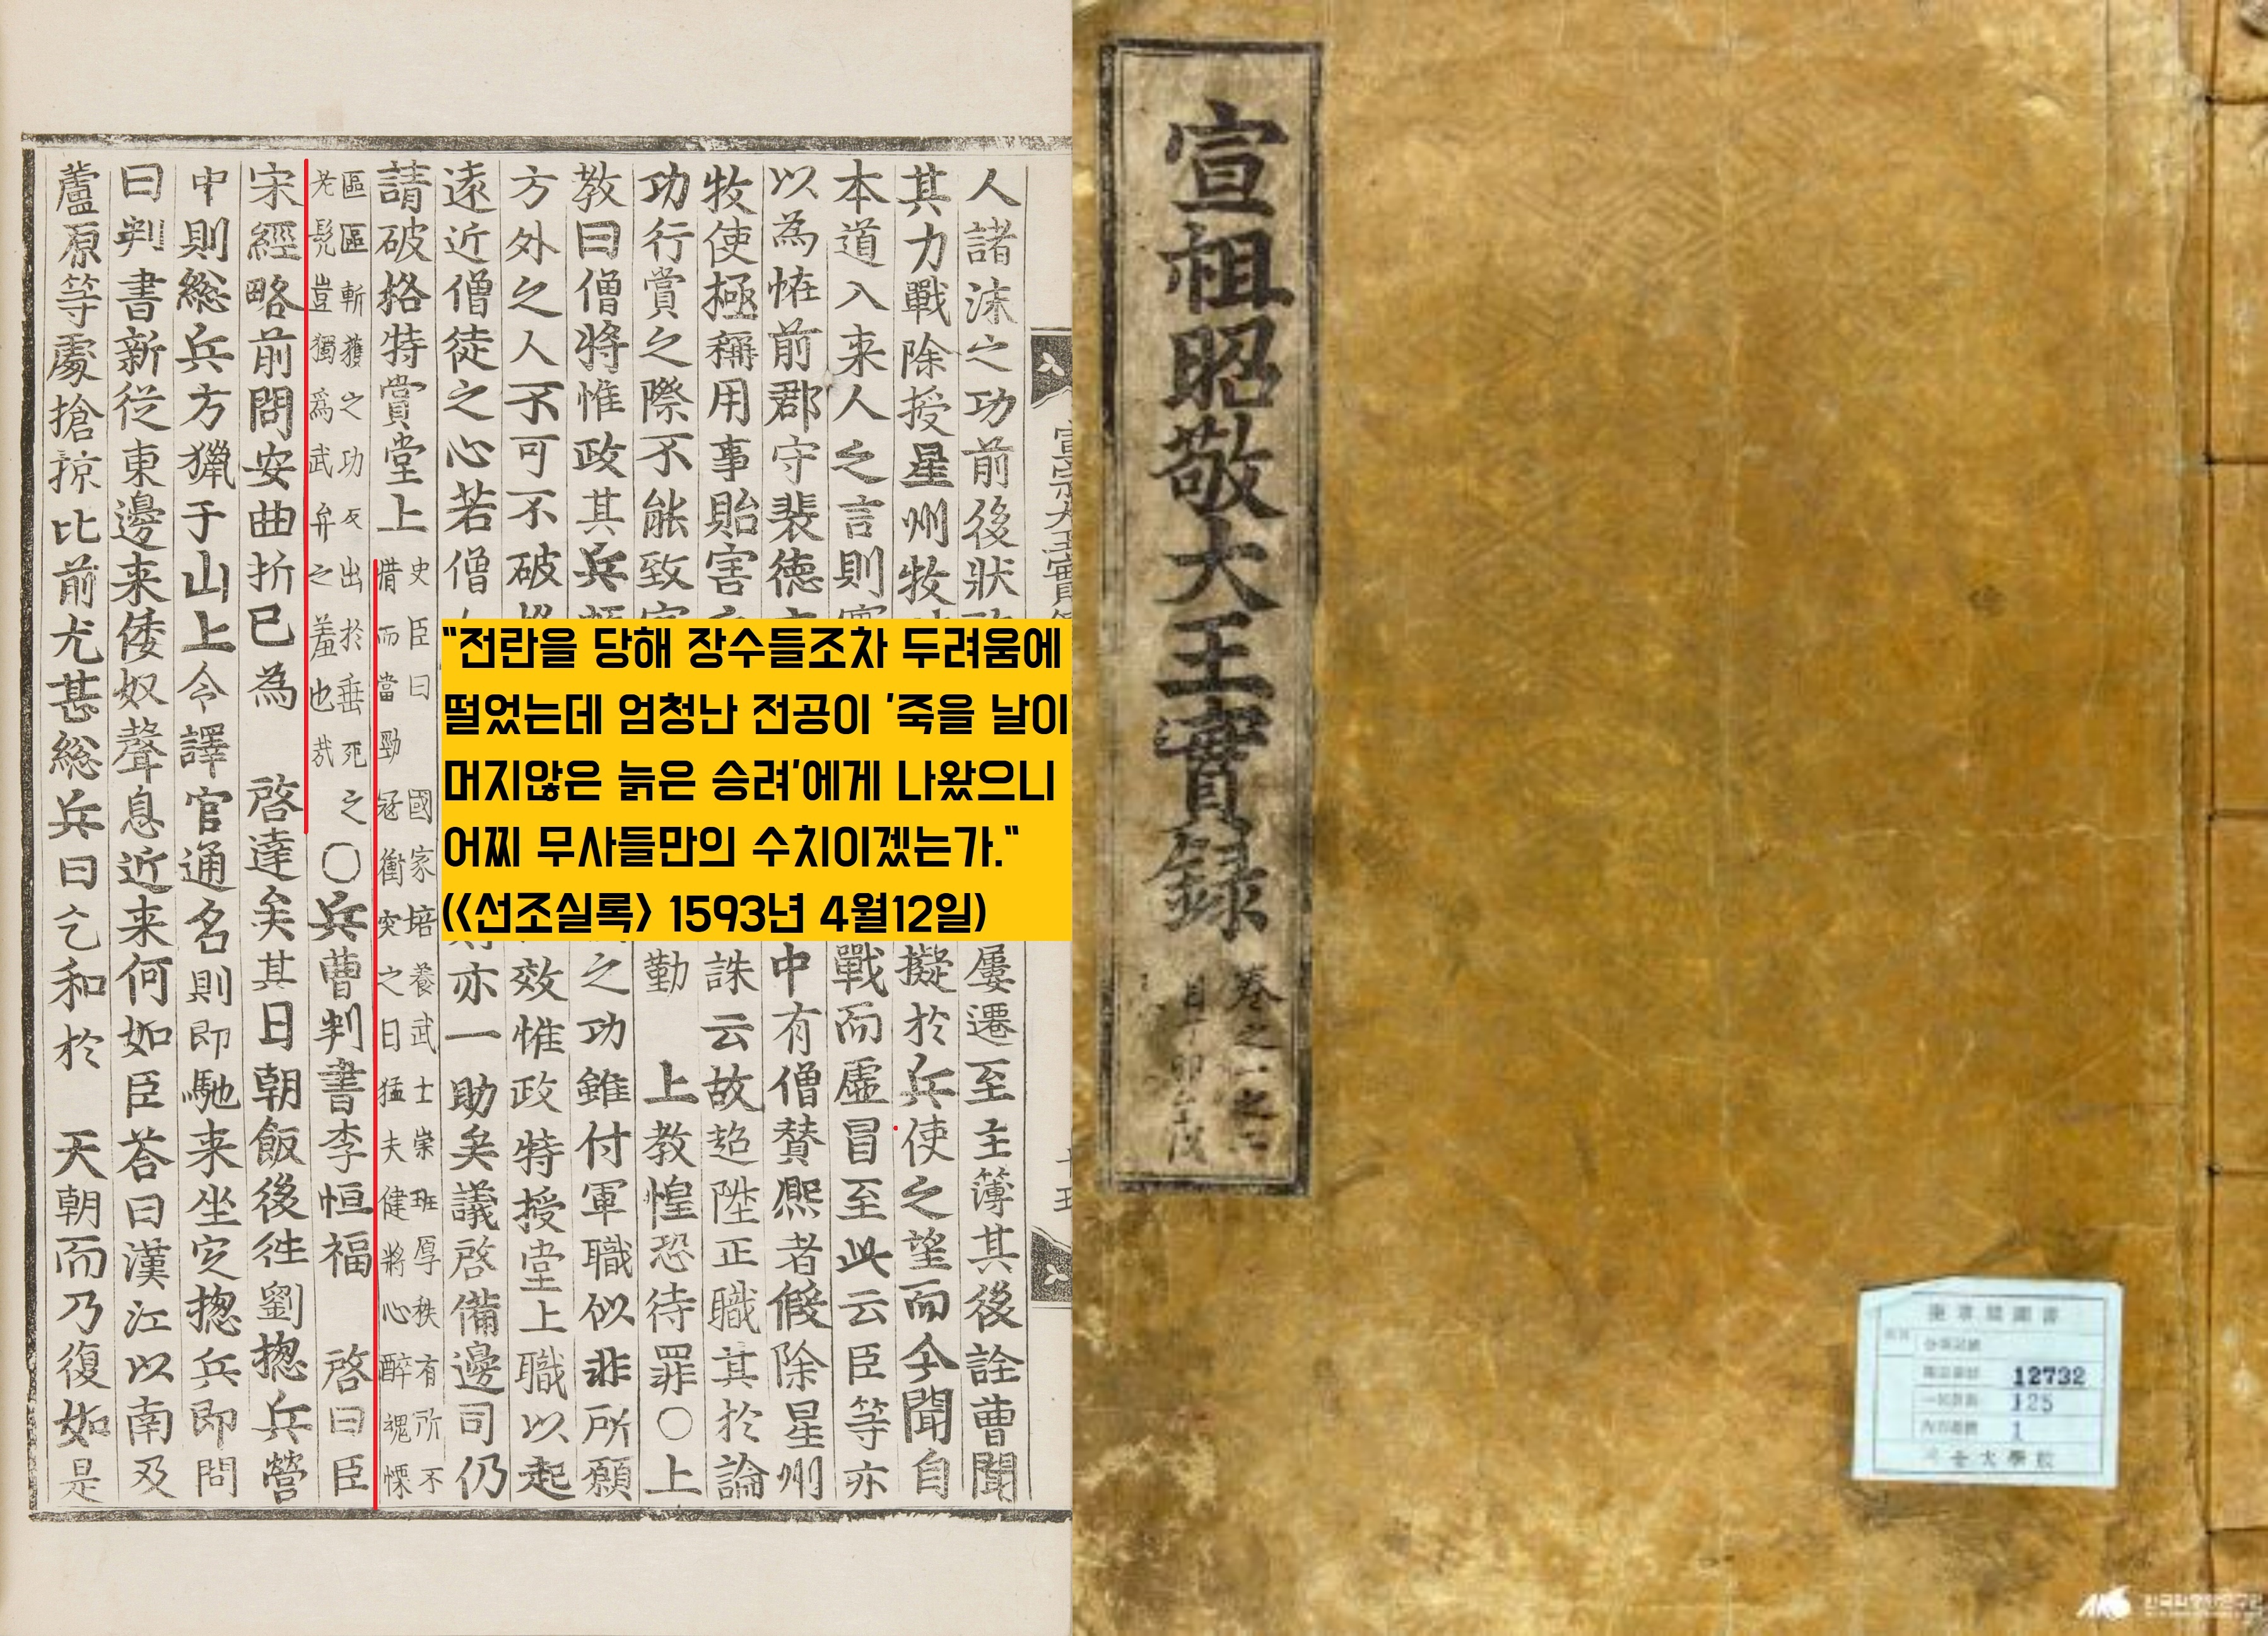 人諸沫之功前後狀 屢遷至主簿其後詮曹聞
其力戰除授星州牧 擬於兵使之望而今聞自
本道入来人之言則 戰而虛冒至此云臣等亦
以為怪前郡守裴德 中有僧贊熙者假除星州
牧使極稱用事貽害 誅云故追陞正職其於論
功行賞之際不能致 勤 上教惶恐待罪○上
教曰僧將惟政其兵 之功雖付軍職似非所願
方外之人不可不破 效惟政特授堂上職以起
遠近僧徒之心若僧 亦一助矣議啓備邊司仍
請破格特賞堂上
史臣曰 國家培養武士崇班厚秩有所不
惜而當勁冦衝突之日猛夫健將心醉魂慄
區區斬獲之功反出於垂死之
老髡豈獨爲武弁之羞也㢤
○兵曹判書李恒福 啓曰臣
宋經略前問安曲折已為 啓達矣其日朝飯後徃劉摠兵營
中則総兵方獵于山上令譯官通名則即馳来坐定摠兵即問
曰判書新従東邊来倭奴聲息近来何如臣荅曰漢江以南及
蘆原等處搶掠比前尤甚総兵曰乞和於 天朝而乃復如是
"전란을 당해 장수들조차 두려움에
떨었는데 엄청난 전공이 '죽을 날이
머지않은 늙은 승려'에게 나왔으니
어찌 무사들만의 수치이겠는가."
(<선조실록> 1593년 4월12일)
宣祖昭敬大王實録
12732
125
1